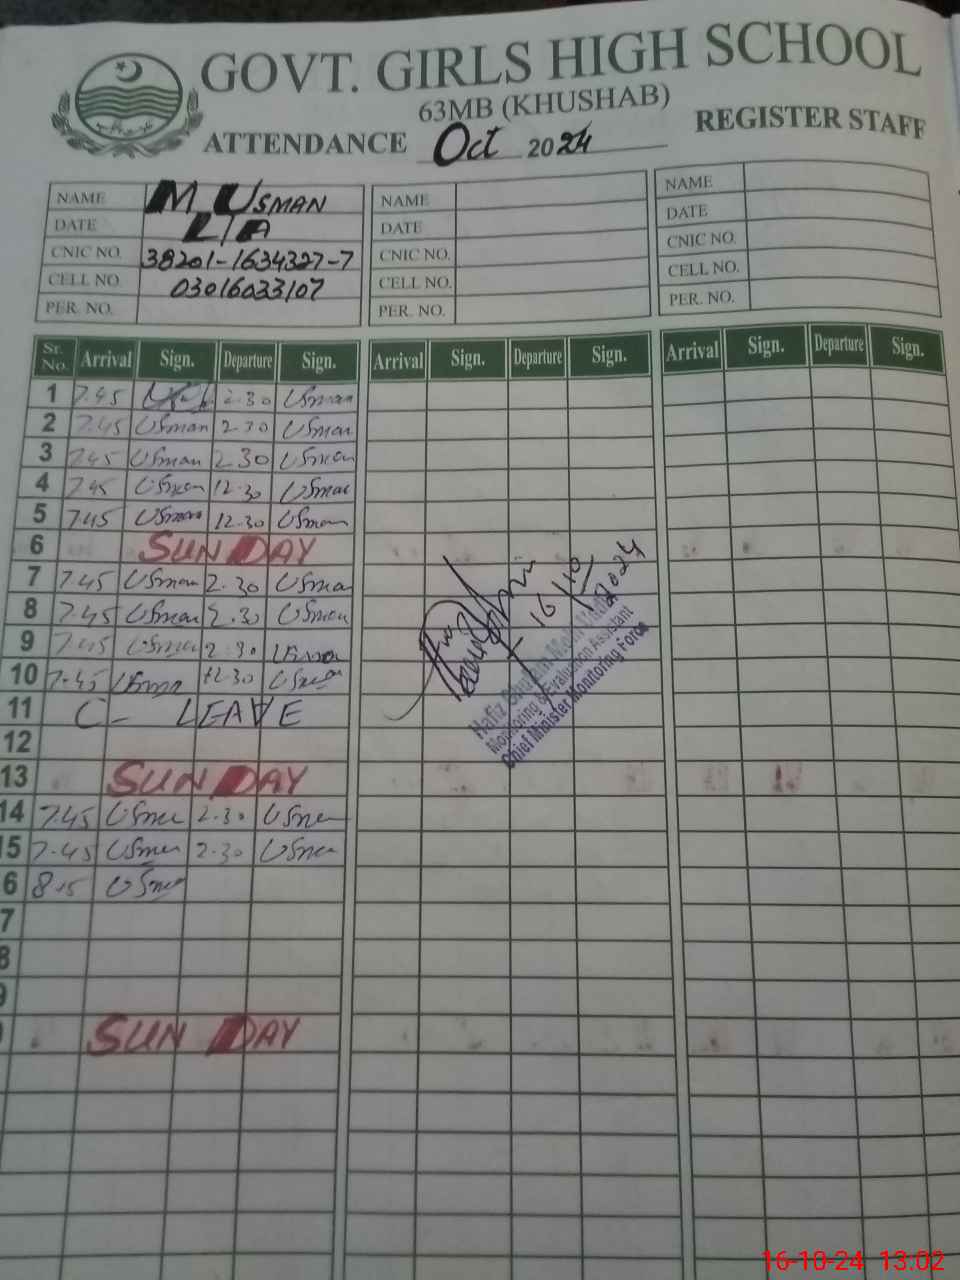 GOVT. GIRLS HIGH SCHOOL
63MB (KHUSHAB)
ATTENDANCE Oct 2024 REGISTER STAFF
NAME M USMAN NAME NAME
DATE L/A DATE DATE
CNIC NO. 38201-1634327-7 CNIC NO. CNIC NO.
CELL NO. 03016033107 CELL NO. CELL NO.
PER. NO. PER. NO. PER. NO.
Sr. No. Arrival Sign. Departure Sign. Arrival Sign. Departure Sign. Arrival Sign. Departure Sign.
1 7.45 2.30 Usman
2 7.45 Usman 2.30 Usman
3 7.45 Usman 2.30 Usman
4 7.45 Usman 12.30 Usman
5 7.45 Usman 12.30 Usman
6 SUNDAY
7 7.45 Usman 2.30 Usman
8 7.45 Usman 2.30 Usman
9 7.45 Usman 2.30 Usman
10 7.45 Usman 12.30 Usman
11 C- LEAVE
12
13 SUNDAY
14 7.45 Usman 2.30 Usman
15 7.45 Usman 2.30 Usman
6 8.15 Usman
7
8
9
SUNDAY
16/10/2024
Hafiz
Monitoring & Evaluation Assistant
Chief Minister Monitoring Force
16-10-24 13:02